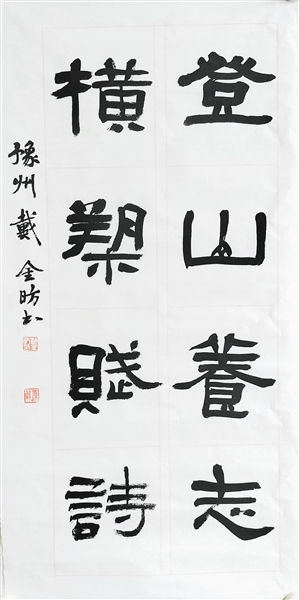 登山養志
橫槊賦詩
豫州戴金昉书